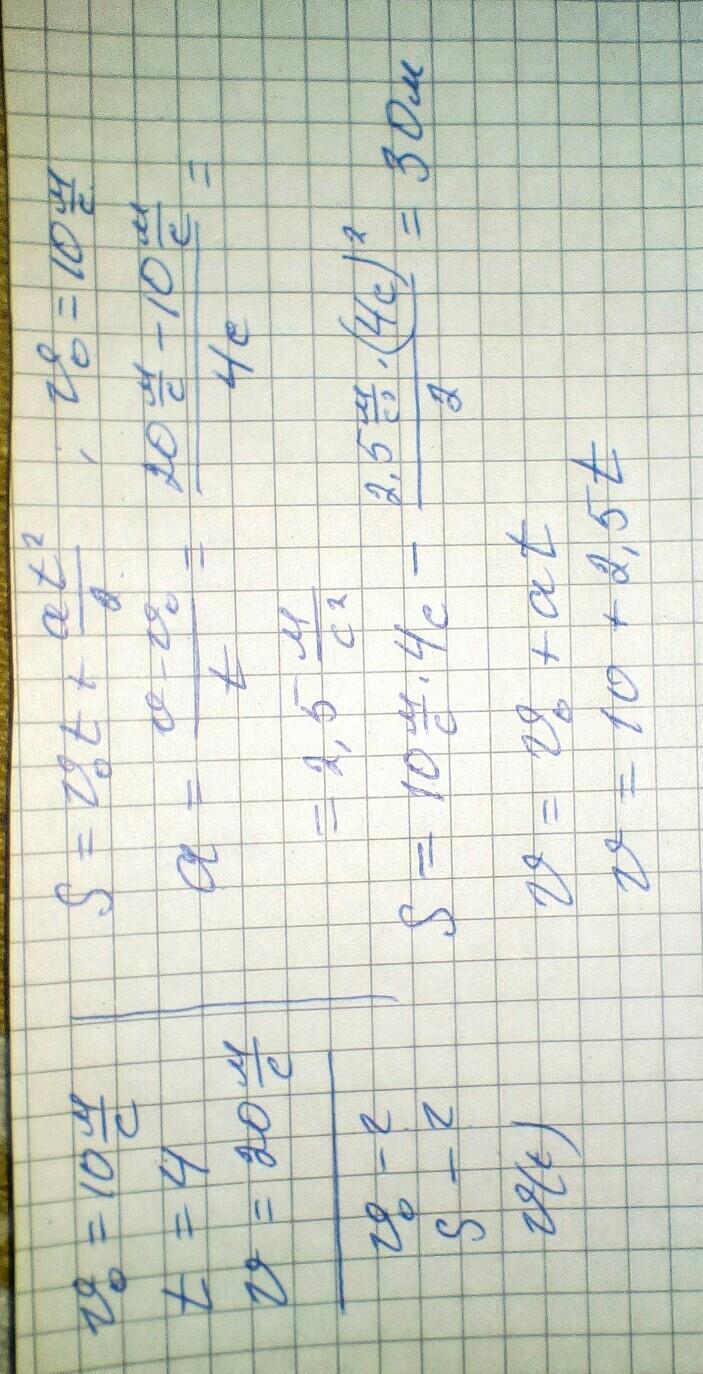 υ₀ = 10 м/с
t = 4
υ = 20 м/с
υ₀ - ?
S - ?
υ(t)
S = υ₀t + at²/2 , υ₀ = 10 м/с
a = (υ - υ₀)/t = (20 м/с - 10 м/с)/4с =
= 2,5 м/с²
S = 10 м/с · 4с - (2,5 м/с² · (4с)²)/2 = 30м
υ = υ₀ + at
υ = 10 + 2,5t